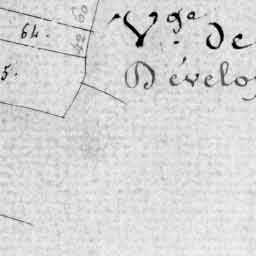 64.
42 60
Vge. de
5.
Dévelo